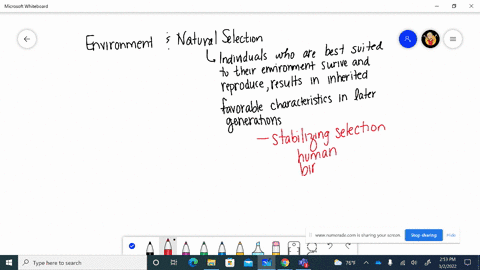 Microsoft Whiteboard
Environment : Natural Selection
Individuals who are best suited
to their environment surive and
reproduce, results in inherited
favorable characteristics in later
generations
— stabilizing selection
human
bir
www.numerade.com is sharing your screen.
Stop sharing
Hide
Type here to search
76°F
2:53 PM
5/2/2022